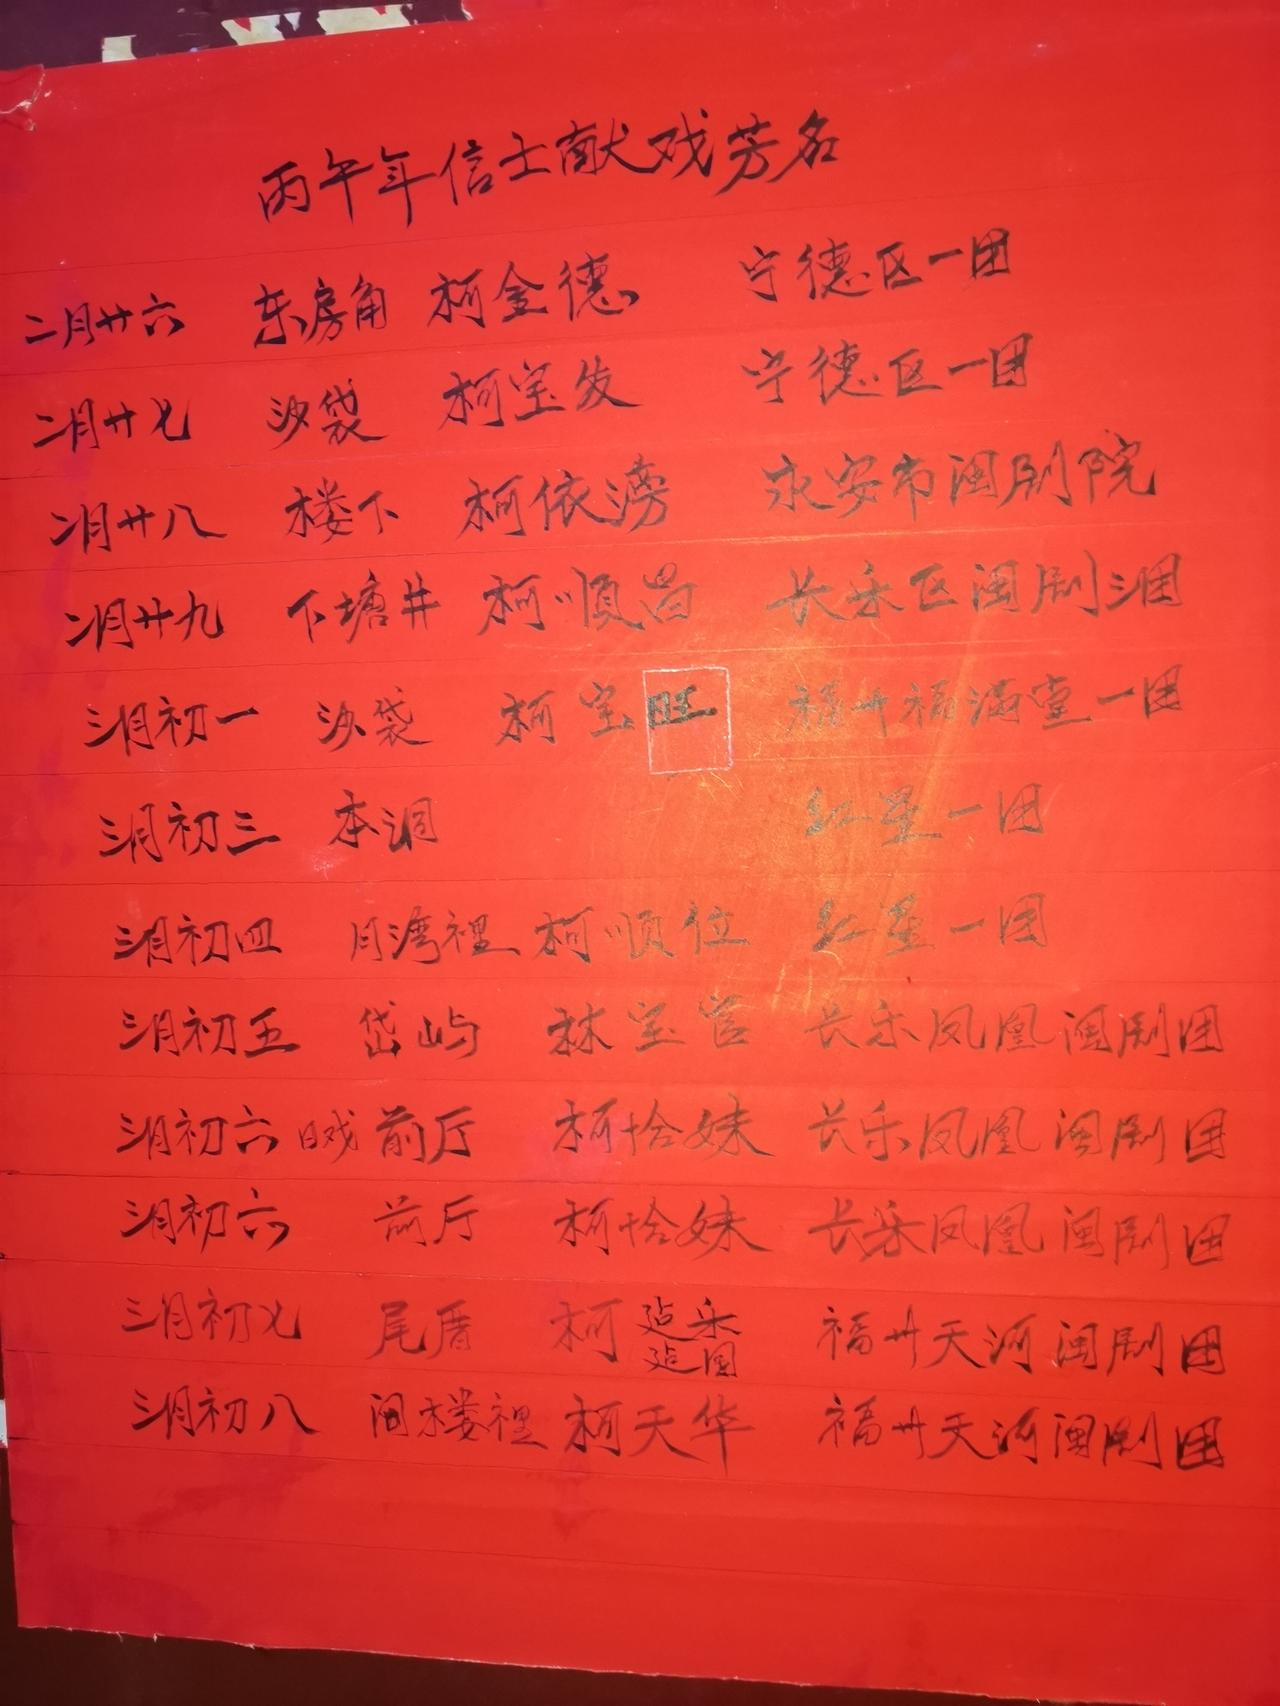 丙午年信士献戏芳名
二月廿六 东房角 柯金德 宁德区一团
二月廿七 沙袋 柯宝发 宁德区一团
二月廿八 楼下 柯依涝 永安市闽剧院
二月廿九 下塘井 柯顺昌 长乐区闽剧三团
三月初一 沙袋 柯宝旺 福州福满堂一团
三月初三 本洞 红星一团
三月初四 月湾裡 柯顺位 红星一团
三月初五 岱屿 林宝官 长乐凤凰闽剧团
三月初六 日戏 前厅 柯恰妹 长乐凤凰闽剧团
三月初六 前厅 柯恰妹 长乐凤凰闽剧团
三月初七 尾厝 柯 乐 国 福州天河闽剧团
三月初八 闽楼裡 柯天华 福州天河闽剧团